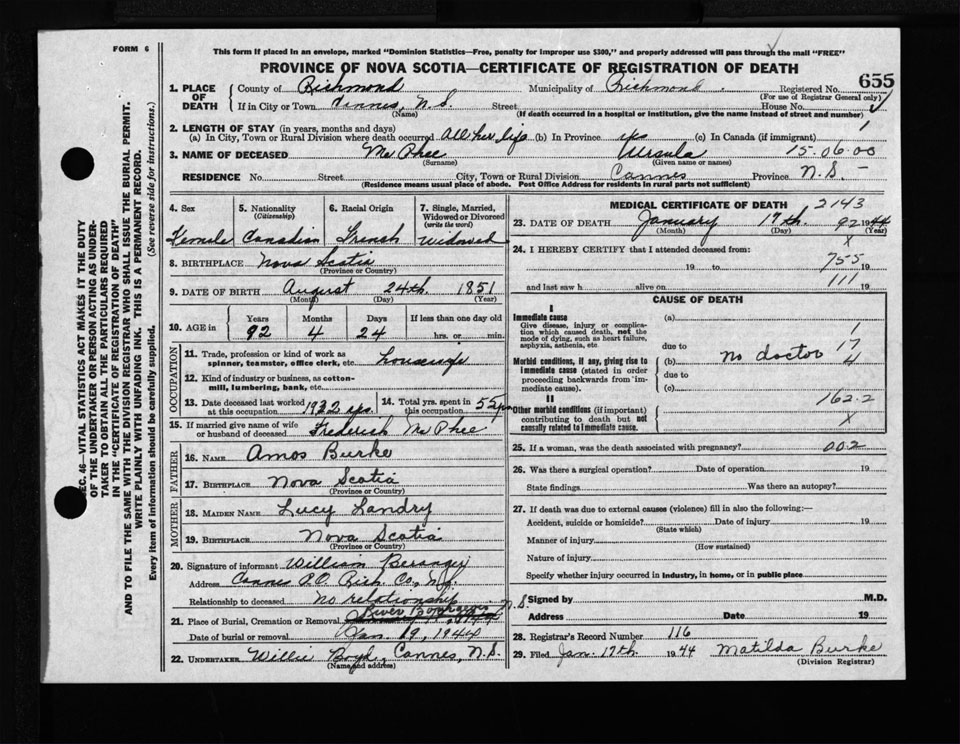 FORM 6
This form if placed in an envelope, marked "Dominion Statistics—Free, penalty for improper use $300," and properly addressed will pass through the mail "FREE"
PROVINCE OF NOVA SCOTIA—CERTIFICATE OF REGISTRATION OF DEATH
655
1. PLACE OF DEATH County of Richmond Municipality of Richmond Registered No.
(For use of Registrar General only)
If in City or Town Cannes, N.S. Street House No.
(Name) (If death occurred in a hospital or institution, give the name instead of street and number)
2. LENGTH OF STAY (in years, months and days)
(a) In City, Town or Rural Division where death occurred All her life (b) In Province yes (c) In Canada (if immigrant) 1
3. NAME OF DECEASED McPhee Ursula 15.06.00
(Surname) (Given name or names)
RESIDENCE No. Street City, Town or Rural Division Cannes Province N.S. —
(Residence means usual place of abode. Post Office Address for residents in rural parts not sufficient)
4. Sex 5. Nationality (Citizenship) 6. Racial Origin 7. Single, Married, Widowed or Divorced (write the word)
Female Canadian French Widowed
8. BIRTHPLACE Nova Scotia
(Province or Country)
9. DATE OF BIRTH August 24th 1851
(Month) (Day) (Year)
10. AGE in Years Months Days If less than one day old
92 4 24 hrs. or min.
OCCUPATION
11. Trade, profession or kind of work as spinner, teamster, office clerk, etc. housewife
12. Kind of industry or business, as cotton-mill, lumbering, bank, etc.
13. Date deceased last worked at this occupation 1932 14. Total yrs. spent in this occupation 55
15. If married give name of wife or husband of deceased Frederick McPhee
FATHER
16. NAME Amos Burke
17. BIRTHPLACE Nova Scotia
(Province or Country)
MOTHER
18. MAIDEN NAME Lucy Landry
19. BIRTHPLACE Nova Scotia
(Province or Country)
20. Signature of informant William
Address Cannes P.O. Rich. Co., N.S.
Relationship to deceased No relationship
21. Place of Burial, Cremation or Removal River Bourgeois N.S.
Date of burial or removal Jan. 19, 1944
22. UNDERTAKER Willie Boyd, Cannes, N.S.
(Name and address)
MEDICAL CERTIFICATE OF DEATH 2143
23. DATE OF DEATH January 17th 92 1944
(Month) (Day) (Year)
x
24. I HEREBY CERTIFY that I attended deceased from:
19 to 755 19
and last saw h alive on 111 19
CAUSE OF DEATH
I
Immediate cause (a)
Give disease, injury or complication which caused death, not the mode of dying, such as heart failure, asphyxia, asthenia, etc. 1
due to 17
Morbid conditions, if any, giving rise to immediate cause (stated in order proceeding backwards from immediate cause). (b) no doctor 4
due to
(c)
II 162.2
Other morbid conditions (if important) contributing to death but not causally related to immediate cause. x
25. If a woman, was the death associated with pregnancy? 00.2
26. Was there a surgical operation? Date of operation 19
State findings Was there an autopsy?
27. If death was due to external causes (violence) fill in also the following:—
Accident, suicide or homicide? Date of injury 19
(State which)
Manner of injury
(How sustained)
Nature of injury
Specify whether injury occurred in industry, in home, or in public place
Signed by M.D.
Address Date 19
28. Registrar's Record Number 116
29. Filed Jan. 17th 1944 Matilda Burke
(Division Registrar)
SEC. 46—VITAL STATISTICS ACT MAKES IT THE DUTY
OF THE UNDERTAKER OR PERSON ACTING AS UNDER-
TAKER TO OBTAIN ALL THE PARTICULARS REQUIRED
IN THE "CERTIFICATE OF REGISTRATION OF DEATH"
AND TO FILE THE SAME WITH THE DIVISION REGISTRAR WHO SHALL ISSUE THE BURIAL PERMIT.
WRITE PLAINLY WITH UNFADING INK. THIS IS A PERMANENT RECORD.
Every item of information should be carefully supplied. (See reverse side for instructions.)